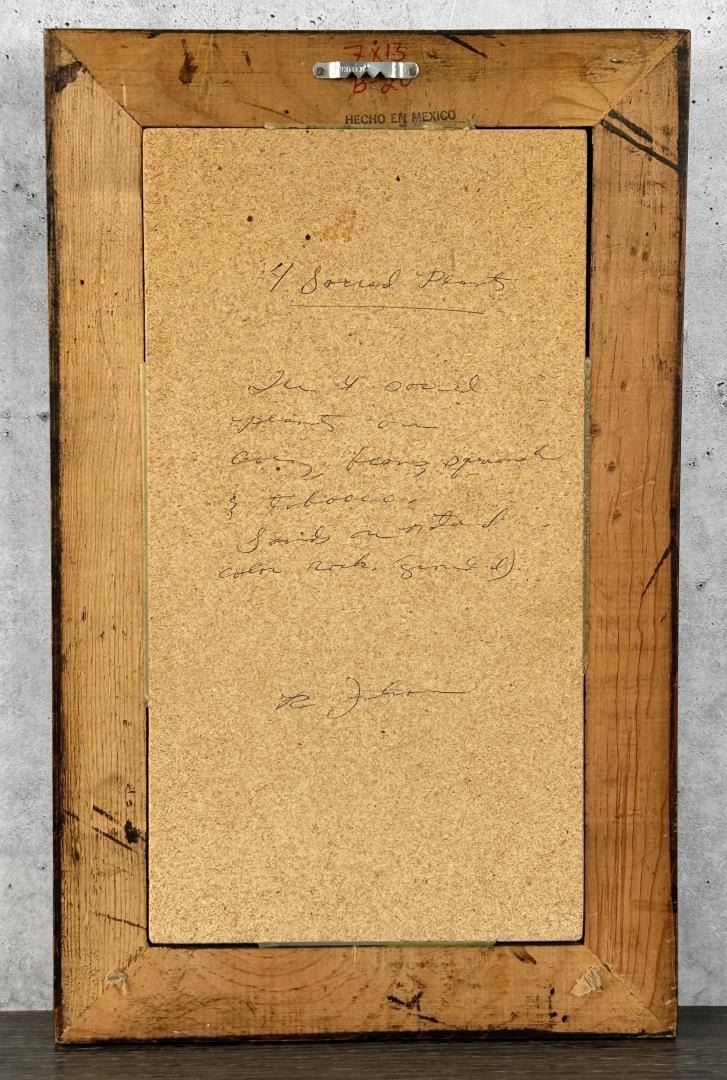 7x13
B-20
HECHO EN MEXICO
4 Sacred Plants
The 4 sacred
plants are
corn, beans, squash
& tobacco.
Sands natural
color rock, ground).